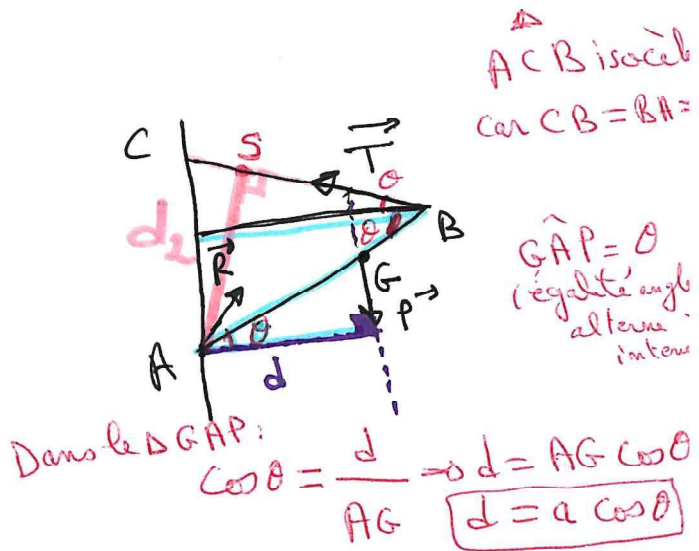 Δ
ACB isocèl
car CB = BA =
C
S
T
θ
d2
R
θ
B
G
P
θ
A
d
GÂP = θ
(égalité angle
alterne
interne
Dans le Δ GAP:
cos θ = d / AG ⇒ d = AG cos θ
d = a cos θ